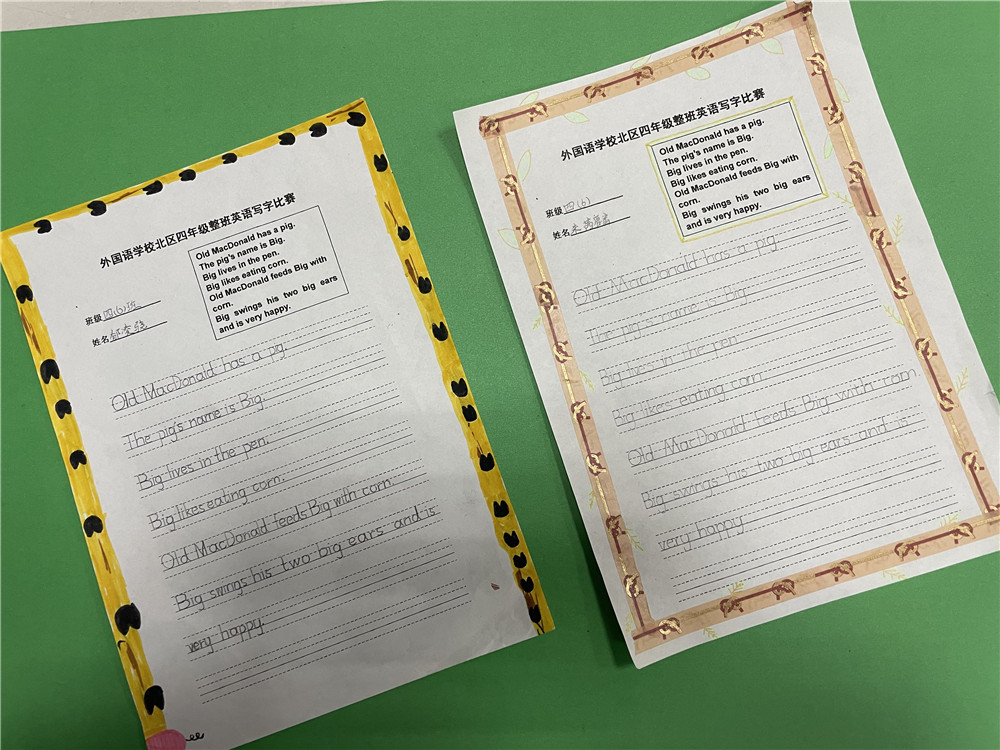 外国语学校北区四年级整班英语写字比赛
Old MacDonald has a pig.
The pig's name is Big.
Big lives in the pen.
Big likes eating corn.
Old MacDonald feeds Big with
corn.
Big swings his two big ears
and is very happy.
班级 四(6)班
姓名
Old MacDonald has a pig.
The pig's name is Big.
Big lives in the pen.
Big likes eating corn.
Old MacDonald feeds Big with corn.
Big swings his two big ears and is
very happy.
外国语学校北区四年级整班英语写字比赛
Old MacDonald has a pig.
The pig's name is Big.
Big lives in the pen.
Big likes eating corn.
Old MacDonald feeds Big with
corn.
Big swings his two big ears
and is very happy.
班级 四(6)
姓名
Old MacDonald has a pig
The pig's name is Big
Big lives in the pen
Big likes eating corn
Old MacDonald feeds Big with corn.
Big swings his two big ears and is
very happy